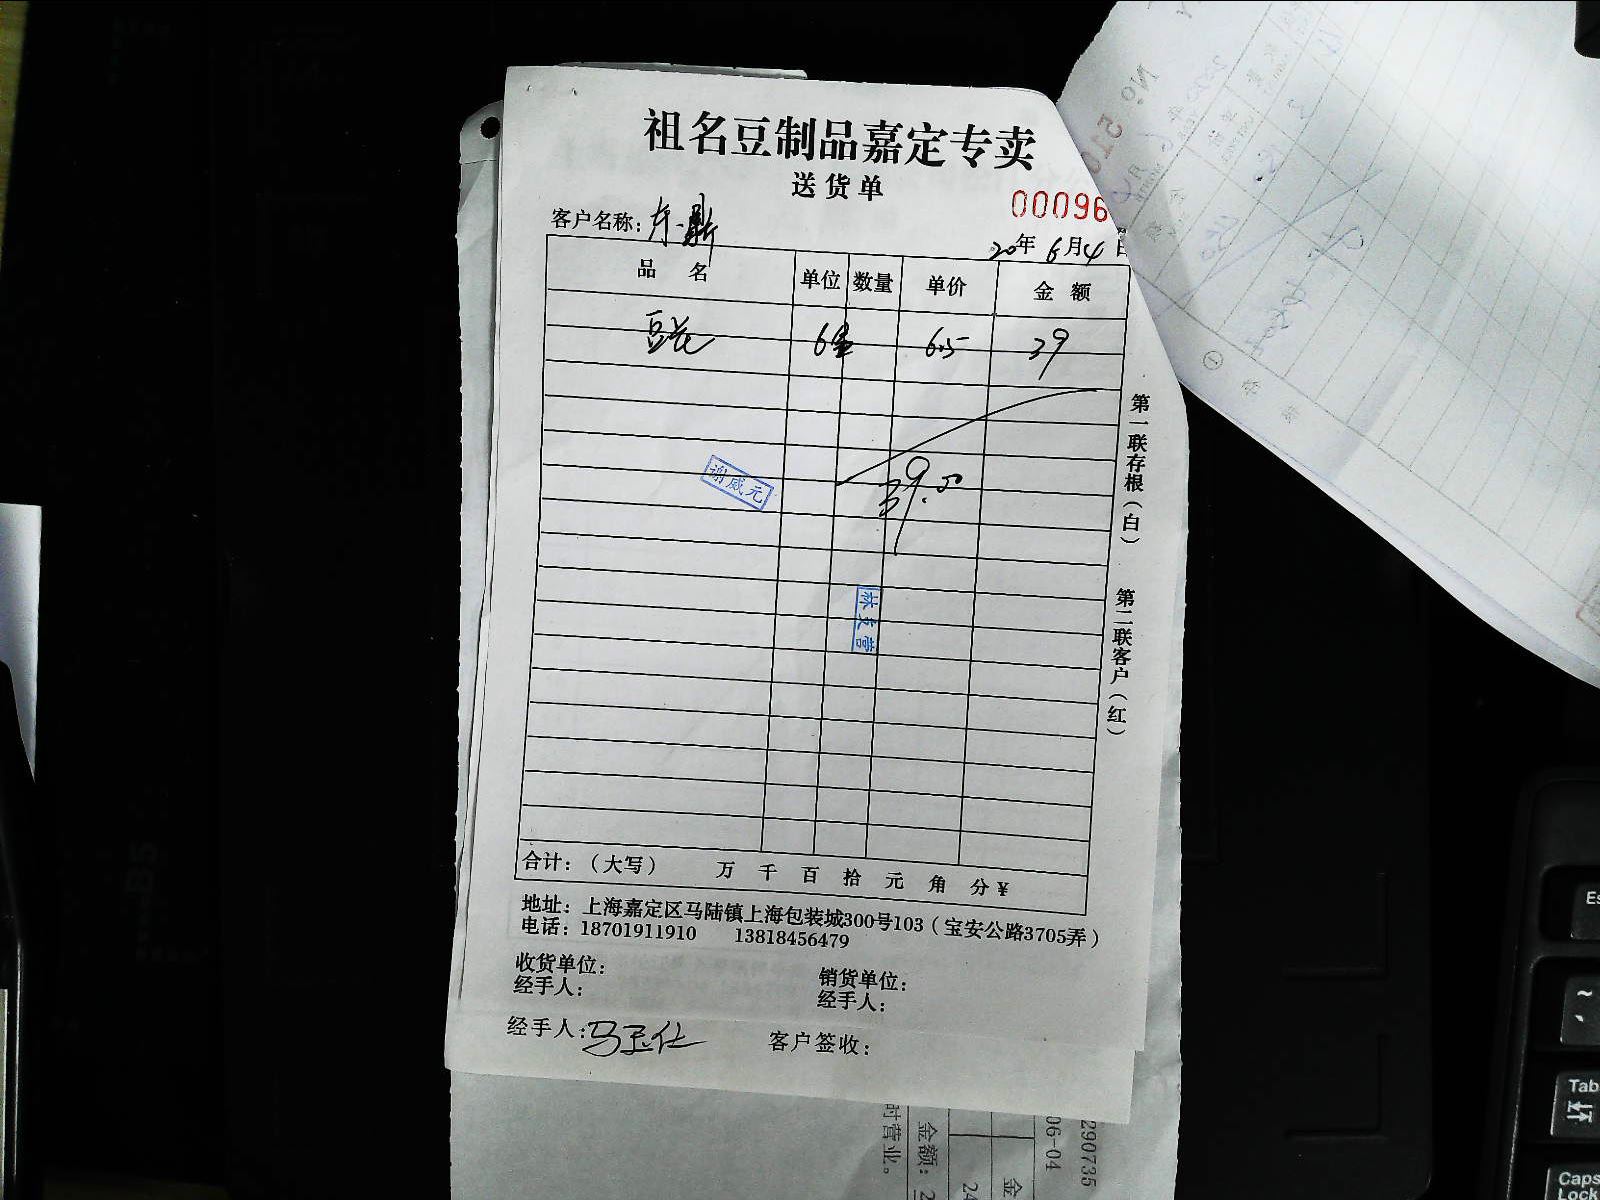 祖名豆制品嘉定专卖
送货单
00096
客户名称：
20年 6月4日
品 名 单位 数量 单价 金 额
豆花 6盒 6.5 39
39.00
谢威元
第一联存根（白） 第二联客户（红）
合计：（大写） 万 千 百 拾 元 角 分 ¥
地址：上海嘉定区马陆镇上海包装城300号103（宝安公路3705弄）
电话：18701911910 13818456479
收货单位： 销货单位：
经手人： 经手人：
经手人： 客户签收：
时营业。
金额：2
24
金
06-04
290735
No 510
B5
Es
~
Tab
Caps
Lock